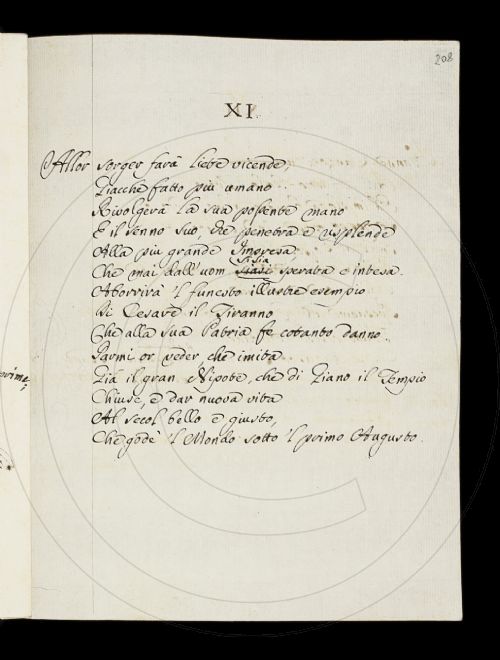 208
XI.
Allor sorger farà liete vicende,
Giacchè fatto più umano
Rivolgerà la sua possente mano
E il senno suo, che penetra e risplende
Alla più grande Impresa
si sia
Che mai dall'uom siasi sperata e intesa.
Aborrirà 'l funesto illustre esempio
Di Cesare il Tiranno
Che alla sua Patria fe cotanto danno.
Parmi or veder che imita
Già il gran Nipote, che di Giano il Tempio
Chiuse, e dar nuova vita
Al secol bello e giusto,
Che godè 'l Mondo sotto 'l primo Augusto.